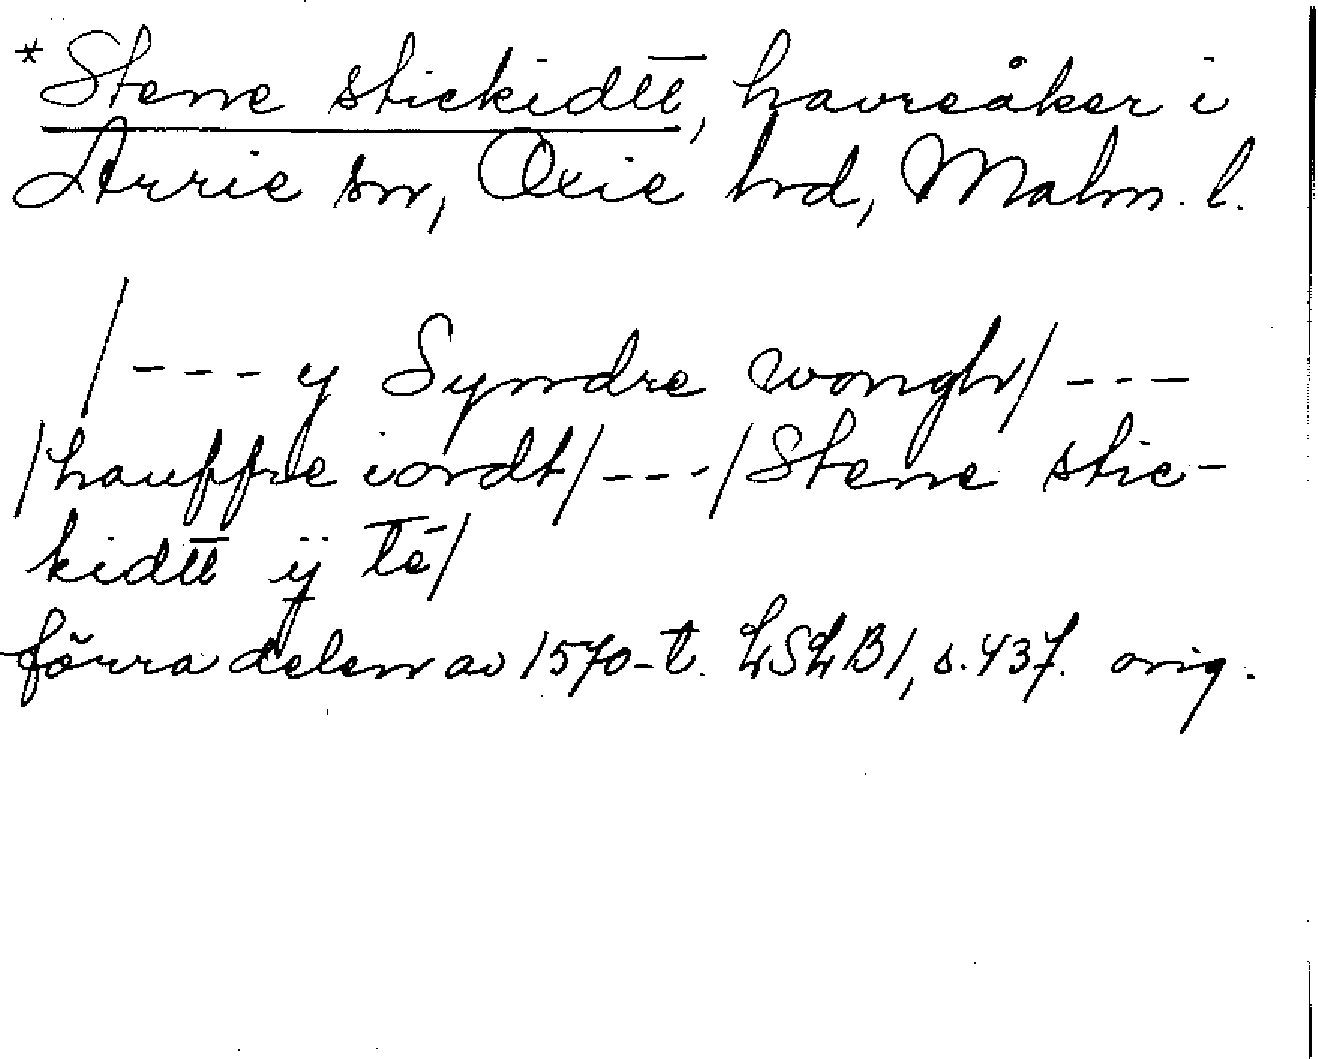 *Stenne stickidtt, havreåker i
Arrie sn, Oxie hrd, Malm. l.
/--- y Synndre wongh/ ---
/hauffre iordt/---/Stenne stic-
kidtt ij té/
förra delen av 1570-t. LSLB1, s.437. orig.